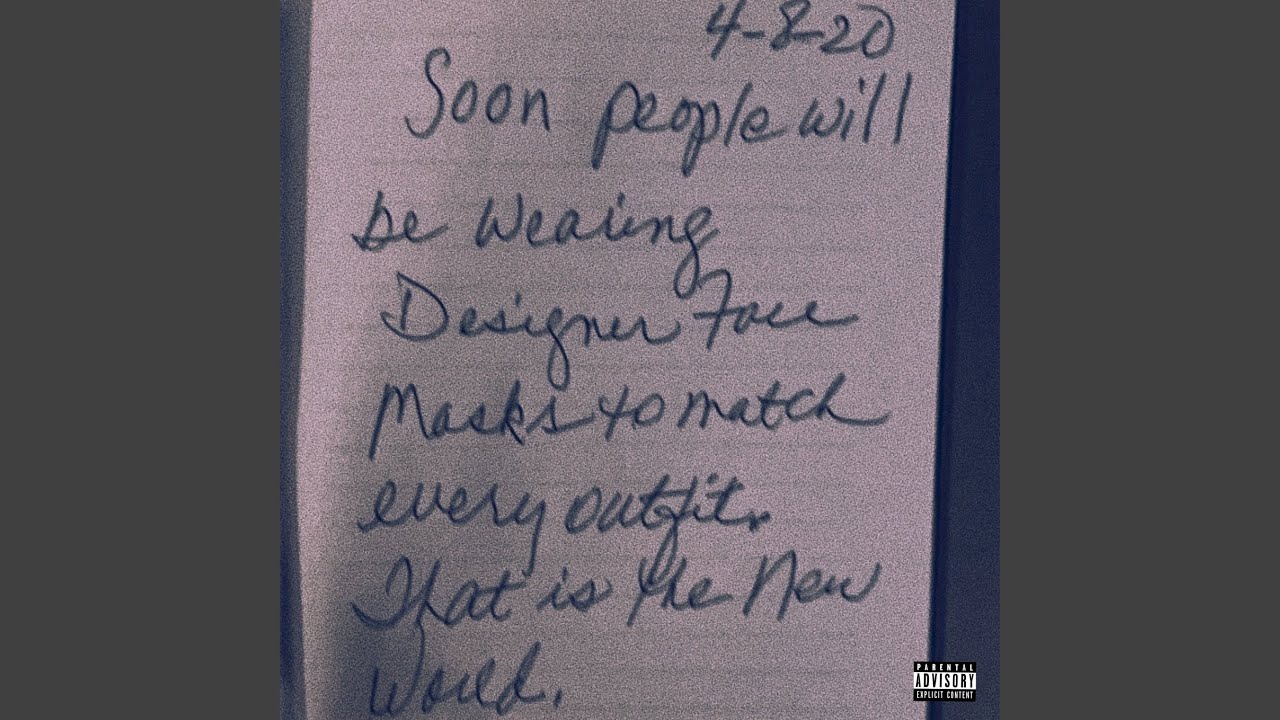 4-8-20
Soon people will
be Wearing
Designer Face
Masks to match
every outfit.
That is the New
World.
PARENTAL
ADVISORY
EXPLICIT CONTENT